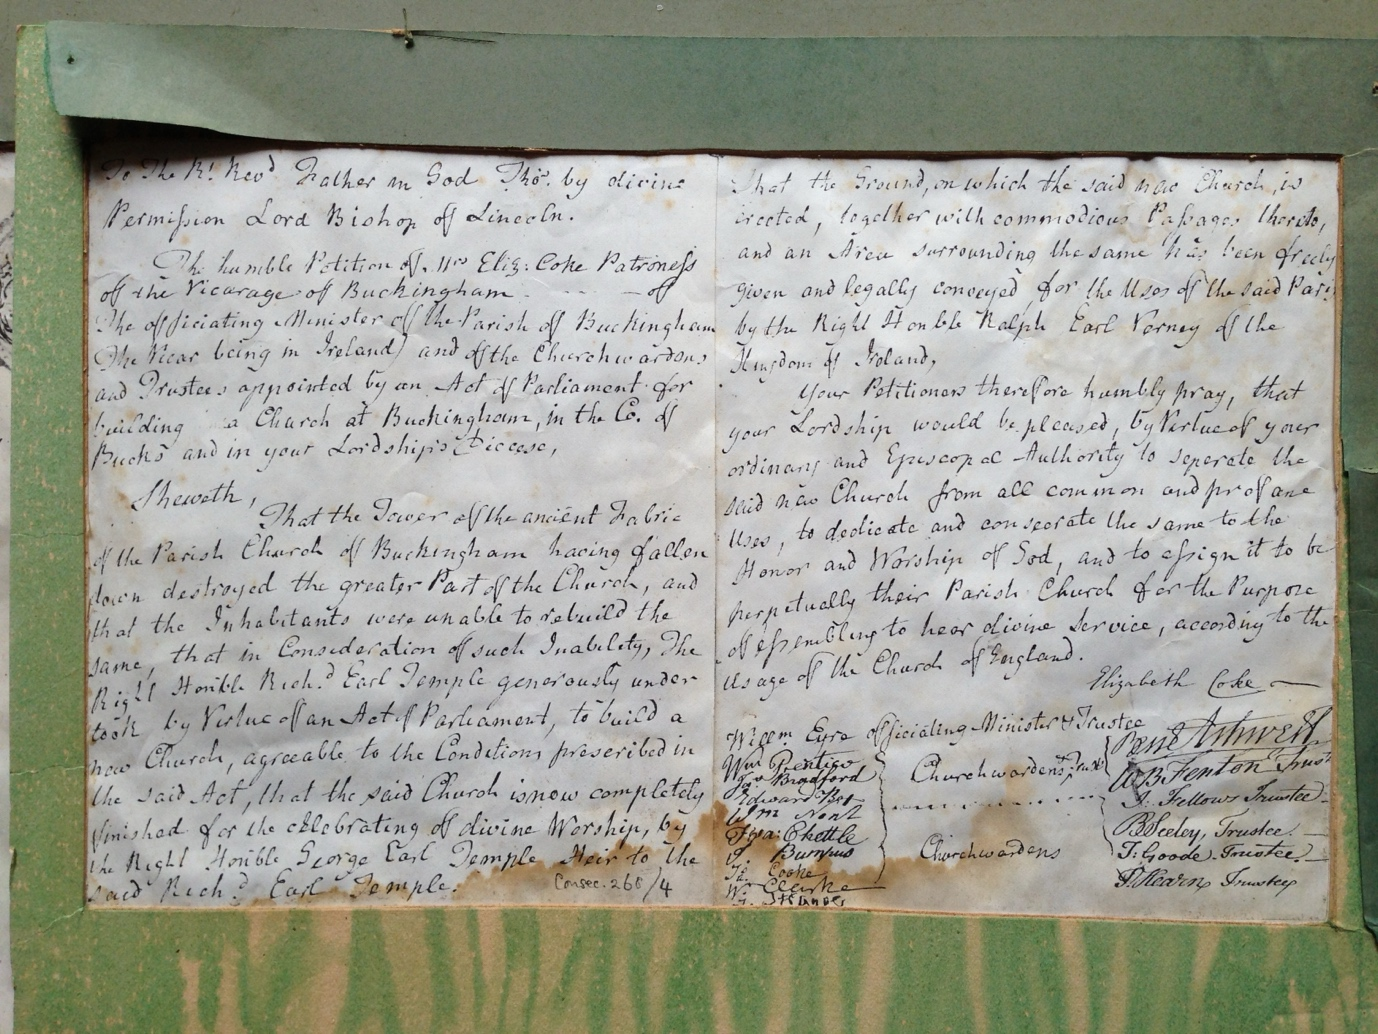 To The Rt. Revd Father in God Thos. by divine
Permission Lord Bishop of Lincoln.
The humble Petition of Mrs Eliz: Coke Patroness
of the Vicarage of Buckingham - - - of
The officiating Minister of the Parish of Buckingham
The Vicar being in Ireland) and of the Churchwardens
and Trustees appointed by an Act of Parliament for
building a Church at Buckingham, in the Co. of
Bucks and in your Lordship's Diocese,
Sheweth,
That the Tower of the ancient Fabric
of the Parish Church of Buckingham having fallen
down destroyed the greater Part of the Church, and
that the Inhabitants were unable to rebuild the
same, that in Consideration of such Inability, The
Right Honble Richd. Earl Temple generously under
took by Virtue of an Act of Parliament, to build a
new Church, agreeable to the Conditions prescribed in
the said Act, that the said Church is now completely
finished for the celebrating of divine Worship, by
the Right Honble George Earl Temple Heir to the
said Richd. Earl Temple.
Consec. 268/4
That the Ground, on which the said new Church is
erected, together with commodious Passages thereto,
and an Area surrounding the same has been freely
given and legally conveyed, for the Uses of the said Parish
by the Right Honble Ralph Earl Verney of the
Kingdom of Ireland,
Your Petitioners therefore humbly pray, that
your Lordship would be pleased, by Virtue of your
ordinary and Episcopal Authority to seperate the
said new Church from all common and profane
Uses, to dedicate and consecrate the same to the
Honor and Worship of God, and to assign it to be
perpetually their Parish Church for the Purpose
of assembling to hear divine Service, according to the
Usage of the Church of England.
Elizabeth Coke
Willm Eyre officiating Minister & Trustee
Wm Prentice
Jas Bradford
Edward
Wm Nont
Fra: Chettle
Burnus
Cooke
W. Clarke
Churchwardens
Churchwardens
Ashwell
W.B. Fenton Trust
J. Fellows Trustee
B Seeley, Trustee.
T: Goode. Trustee.
P. Hearn Trustee